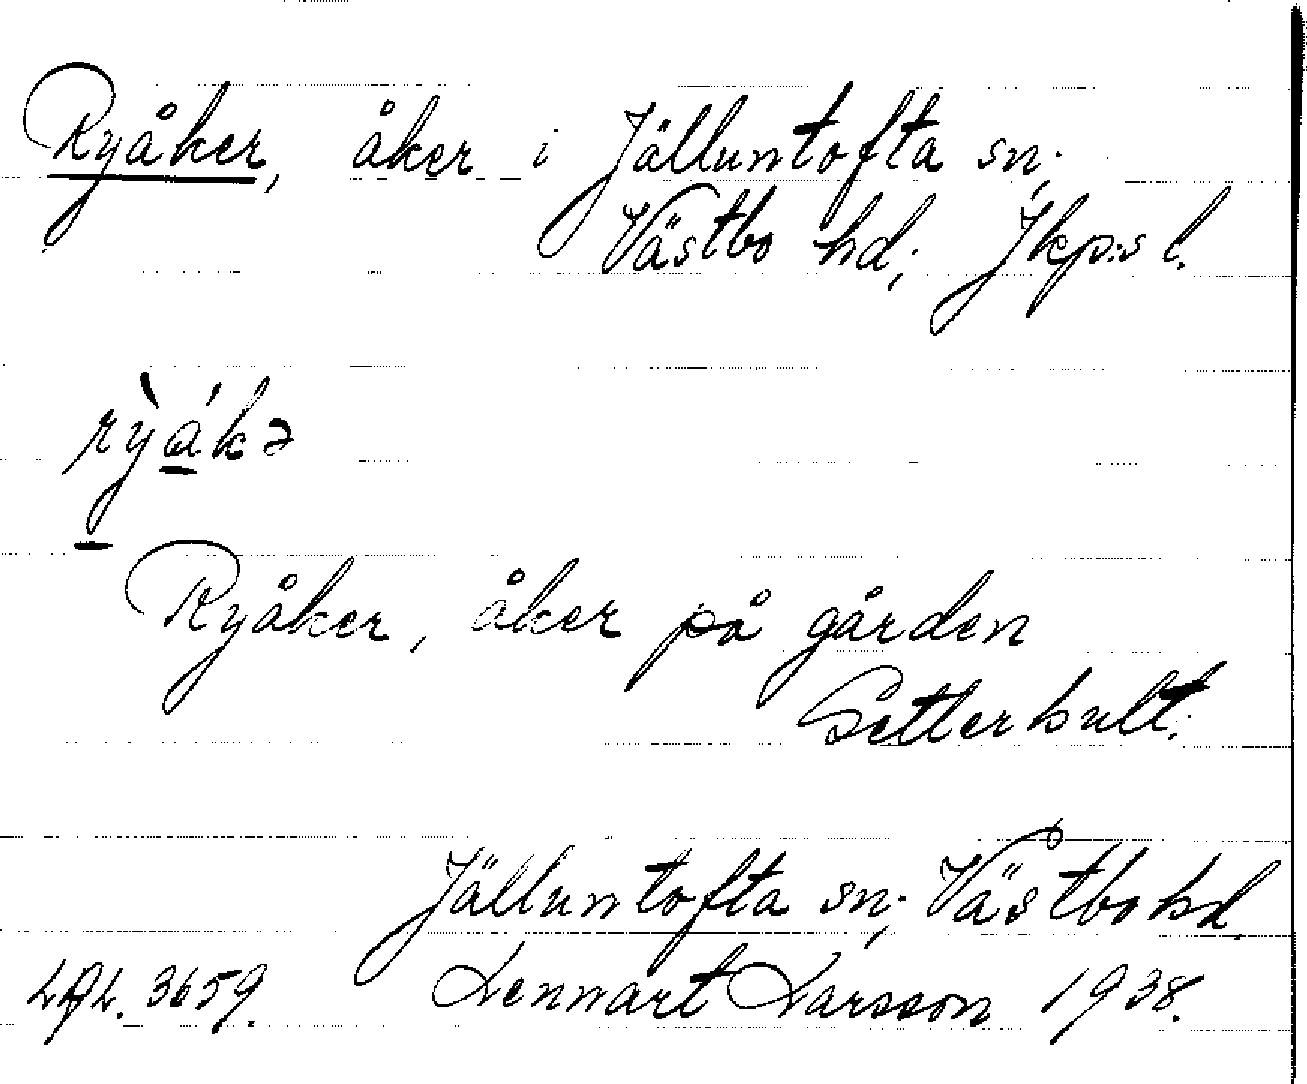 Ryåker, åker i Jälluntofta sn;
Västbo hd; Jkp:s l.
rỳákə
Ryåker, åker på gården
Setterhult.
Jälluntofta sn; Västbo hd.
LAL. 3659. Lennart Larsson 1938.